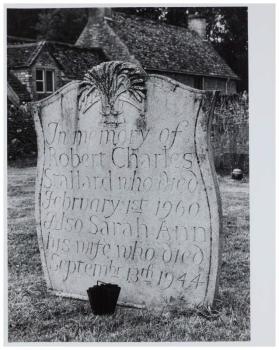 In memory of
Robert Charles
Stallard who died
February 1st 1960
Also Sarah Ann
his wife who died
September 13th 1944